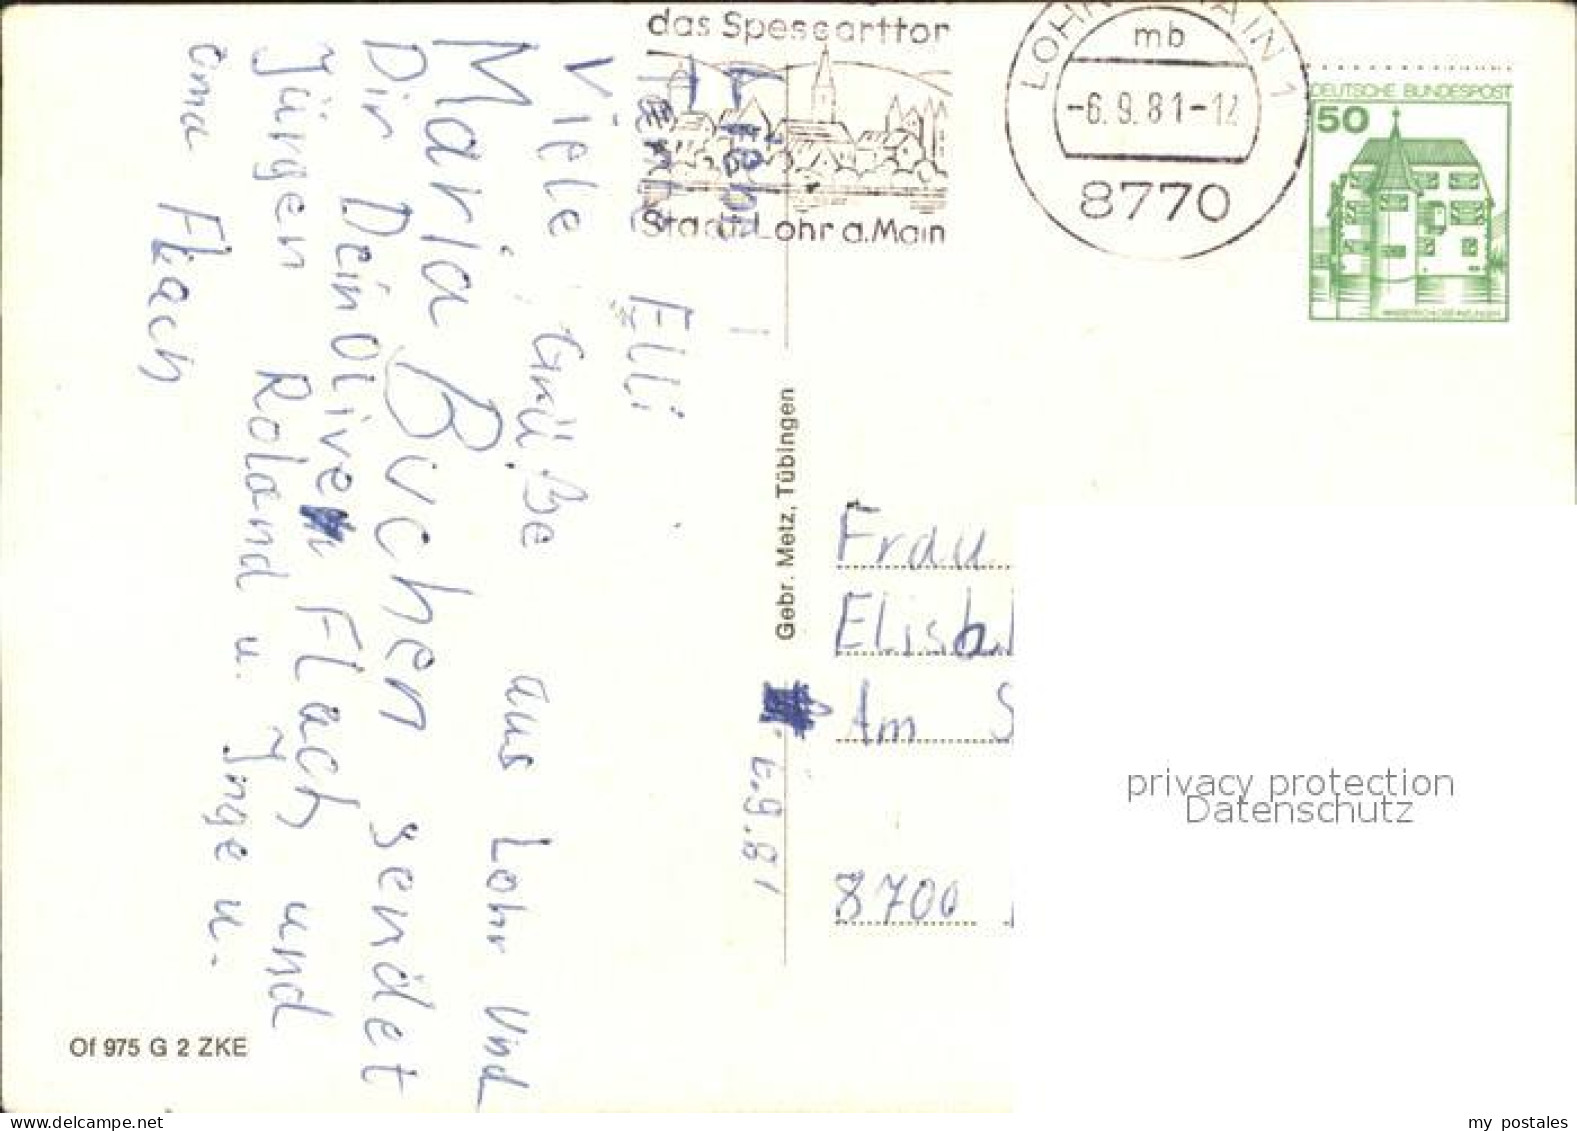 das Spessarttor
Stadt Lohr a. Main
LOHR MAIN 1
mb
-6.9.81-12
8770
DEUTSCHE BUNDESPOST
50
Liebe Tante
Elli
Viele Grüße aus Lohr und
Maria Buchen sendet
Dir Dein Oliver Flach und
Jürgen Roland u. Inge u.
oma Flach
6.9.81
Gebr. Metz, Tübingen
Frau
Am S
8700
privacy protection
Datenschutz
Of 975 G 2 ZKE
my postales